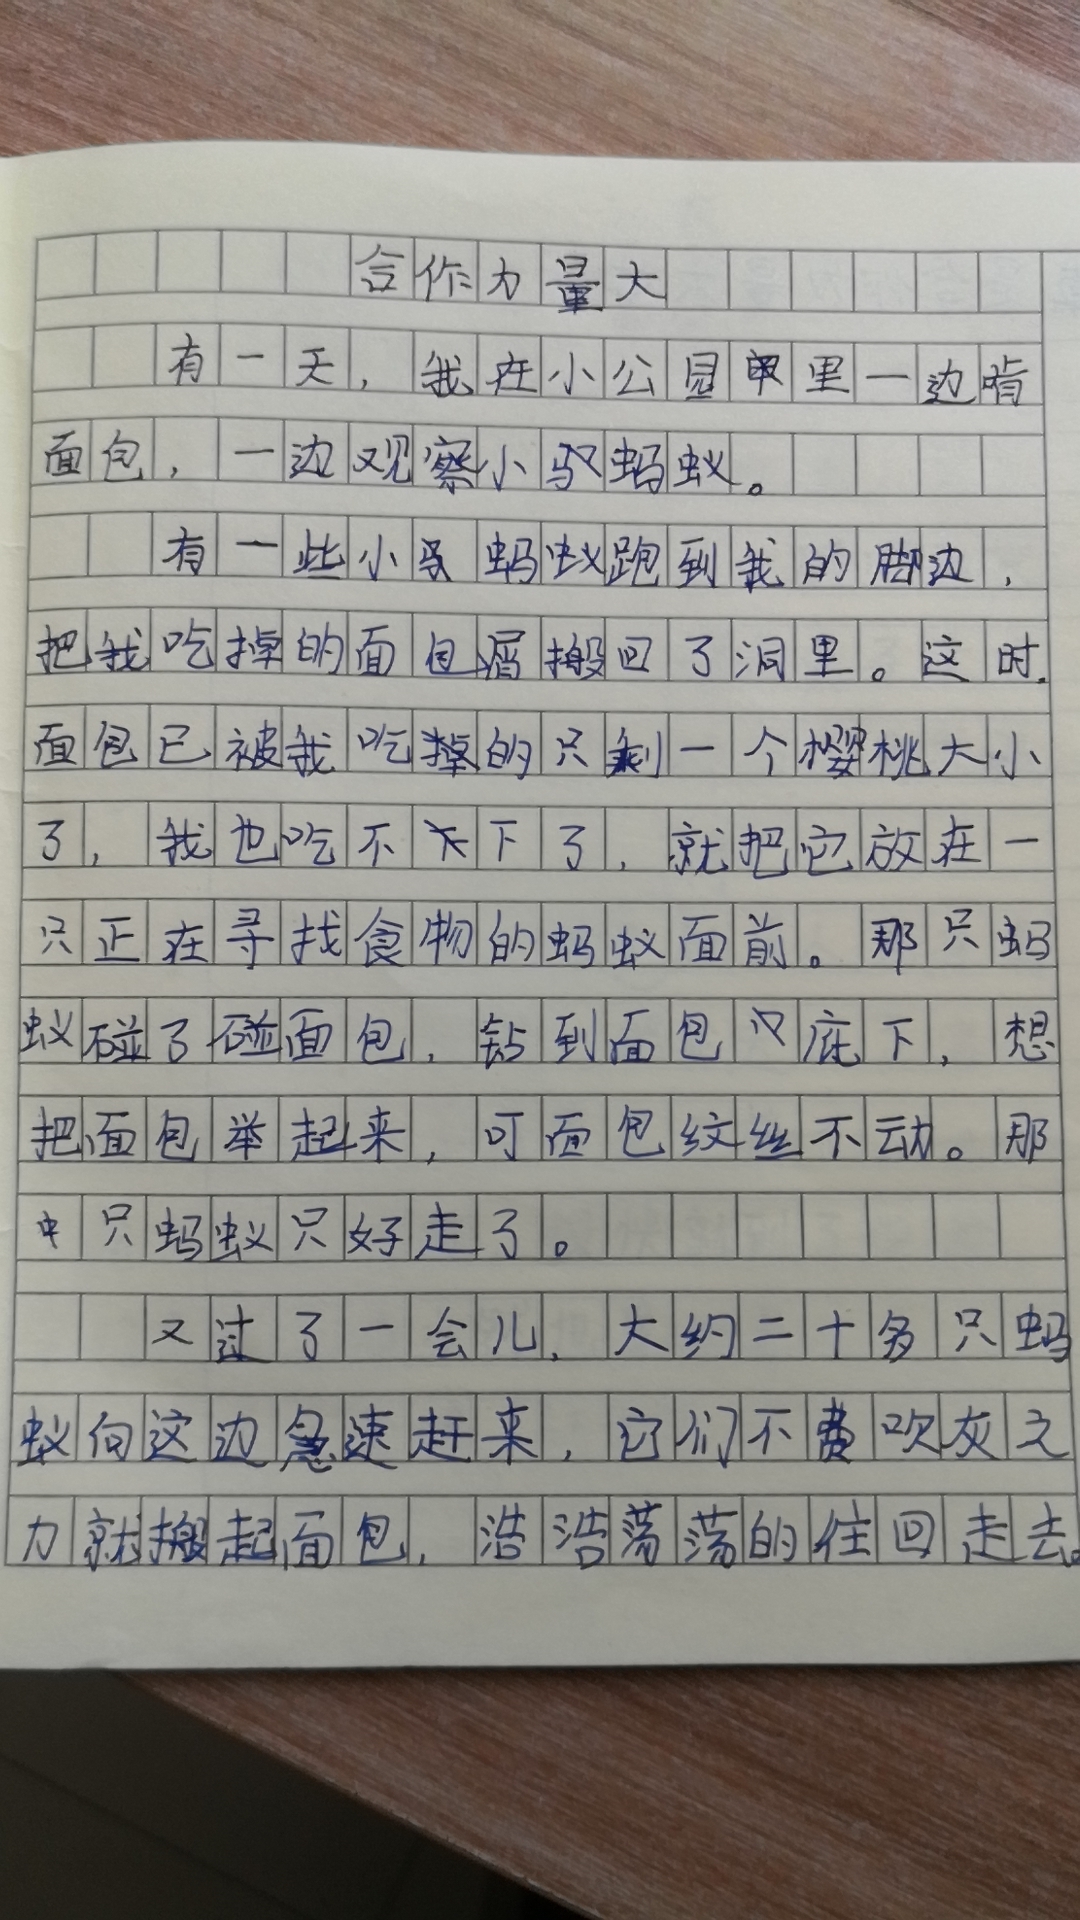 合作力量大
有一天，我在小公园里一边啃
面包，一边观察小蚂蚁。
有一些小蚂蚁跑到我的脚边，
把我吃掉的面包屑搬回了洞里。这时，
面包已被我吃掉的只剩一个樱桃大小
了，我也吃不下了，就把它放在一
只正在寻找食物的蚂蚁面前。那只蚂
蚁碰了碰面包，钻到面包底下，想
把面包举起来，可面包纹丝不动。那
只蚂蚁只好走了。
又过了一会儿，大约二十多只蚂
蚁向这边急速赶来，它们不费吹灰之
力就搬起面包，浩浩荡荡的往回走去。